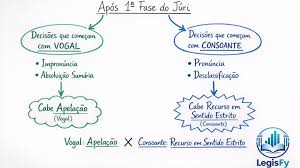 Após 1ª Fase do Júri
Decisões que começam
com VOGAL
• Impronúncia
• Absolvição Sumária
Cabe Apelação
(Vogal)
Decisões que começam
com CONSOANTE
• Pronúncia
• Desclassificação
Cabe Recurso em
Sentido Estrito
(Consoante)
Vogal: Apelação X Consoante: Recurso em Sentido Estrito
LegisFy